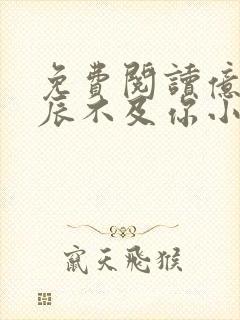 免費閱讀億
辰不及你小
竄天飛猴